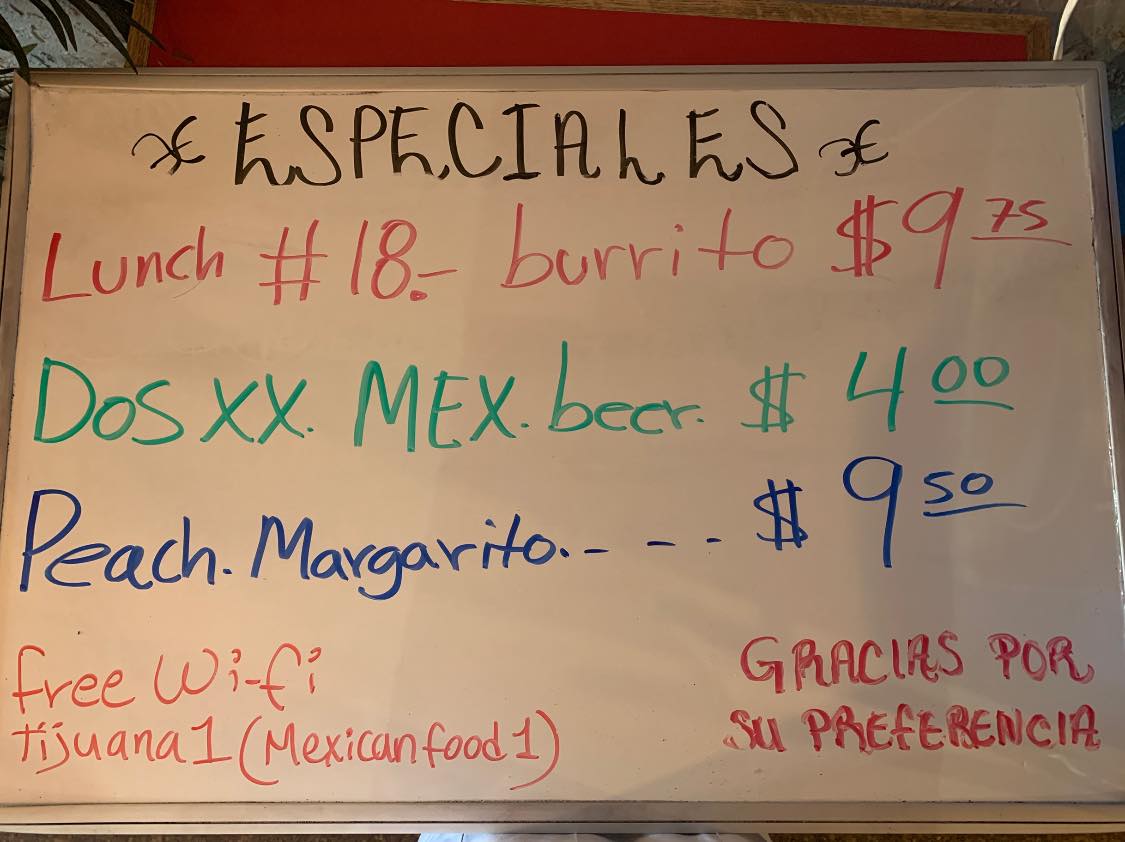 ESPECIALES
Lunch #18.- burrito $9 75
Dos XX. MEX. beer. $ 4 00
Peach. Margarito.- - - - $ 9 50
free Wi-fi
tijuana1 (Mexicanfood1)
GRACIAS POR
SU PREFERENCIA